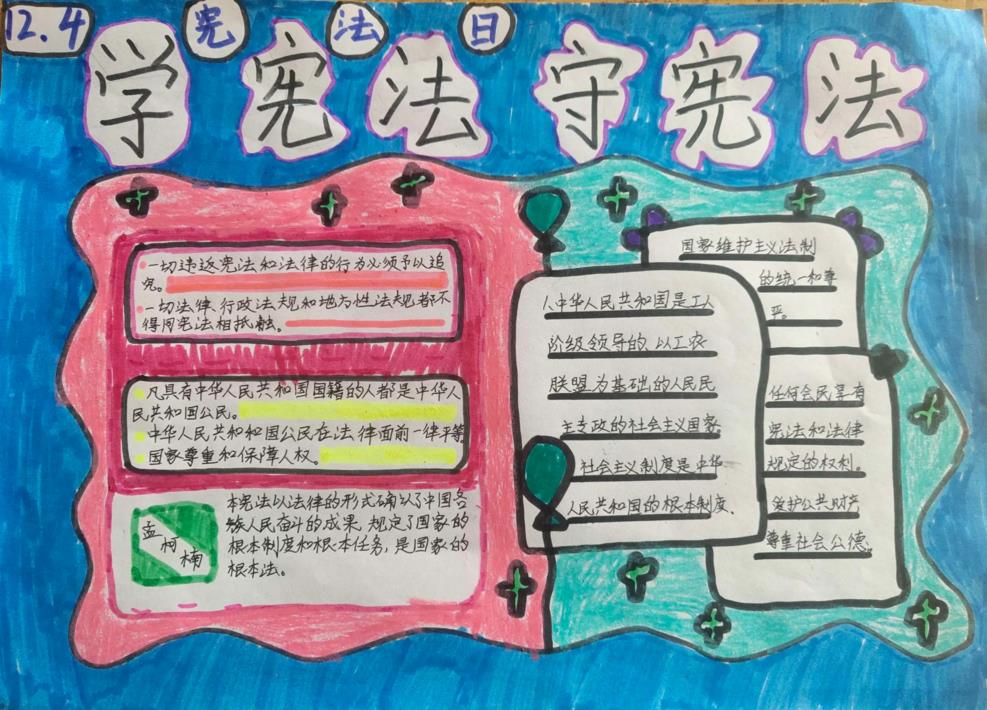 12.4 宪法日
学宪法守宪法
一切违返宪法和法律的行为必须予以追
究。
一切法律、行政法规和地方性法规都不
得同宪法相抵触。
凡具有中华人民共和国国籍的人都是中华人
民共和国公民。
中华人民共和和国公民在法律面前一律平等
国家尊重和保障人权。
本宪法以法律的形式确认了中国各
族人民奋斗的成果,规定了国家的
根本制度和根本任务,是国家的
根本法。
孟柯楠
中华人民共和国是工人
阶级领导的、以工农
联盟为基础的人民民
主专政的社会主义国家
社会主义制度是中华
人民共和国的根本制度、
国家维护主义法制
的统一和尊
严。
任何会民享有
宪法和法律
规定的权利。
爱护公共财产
尊重社会公德。